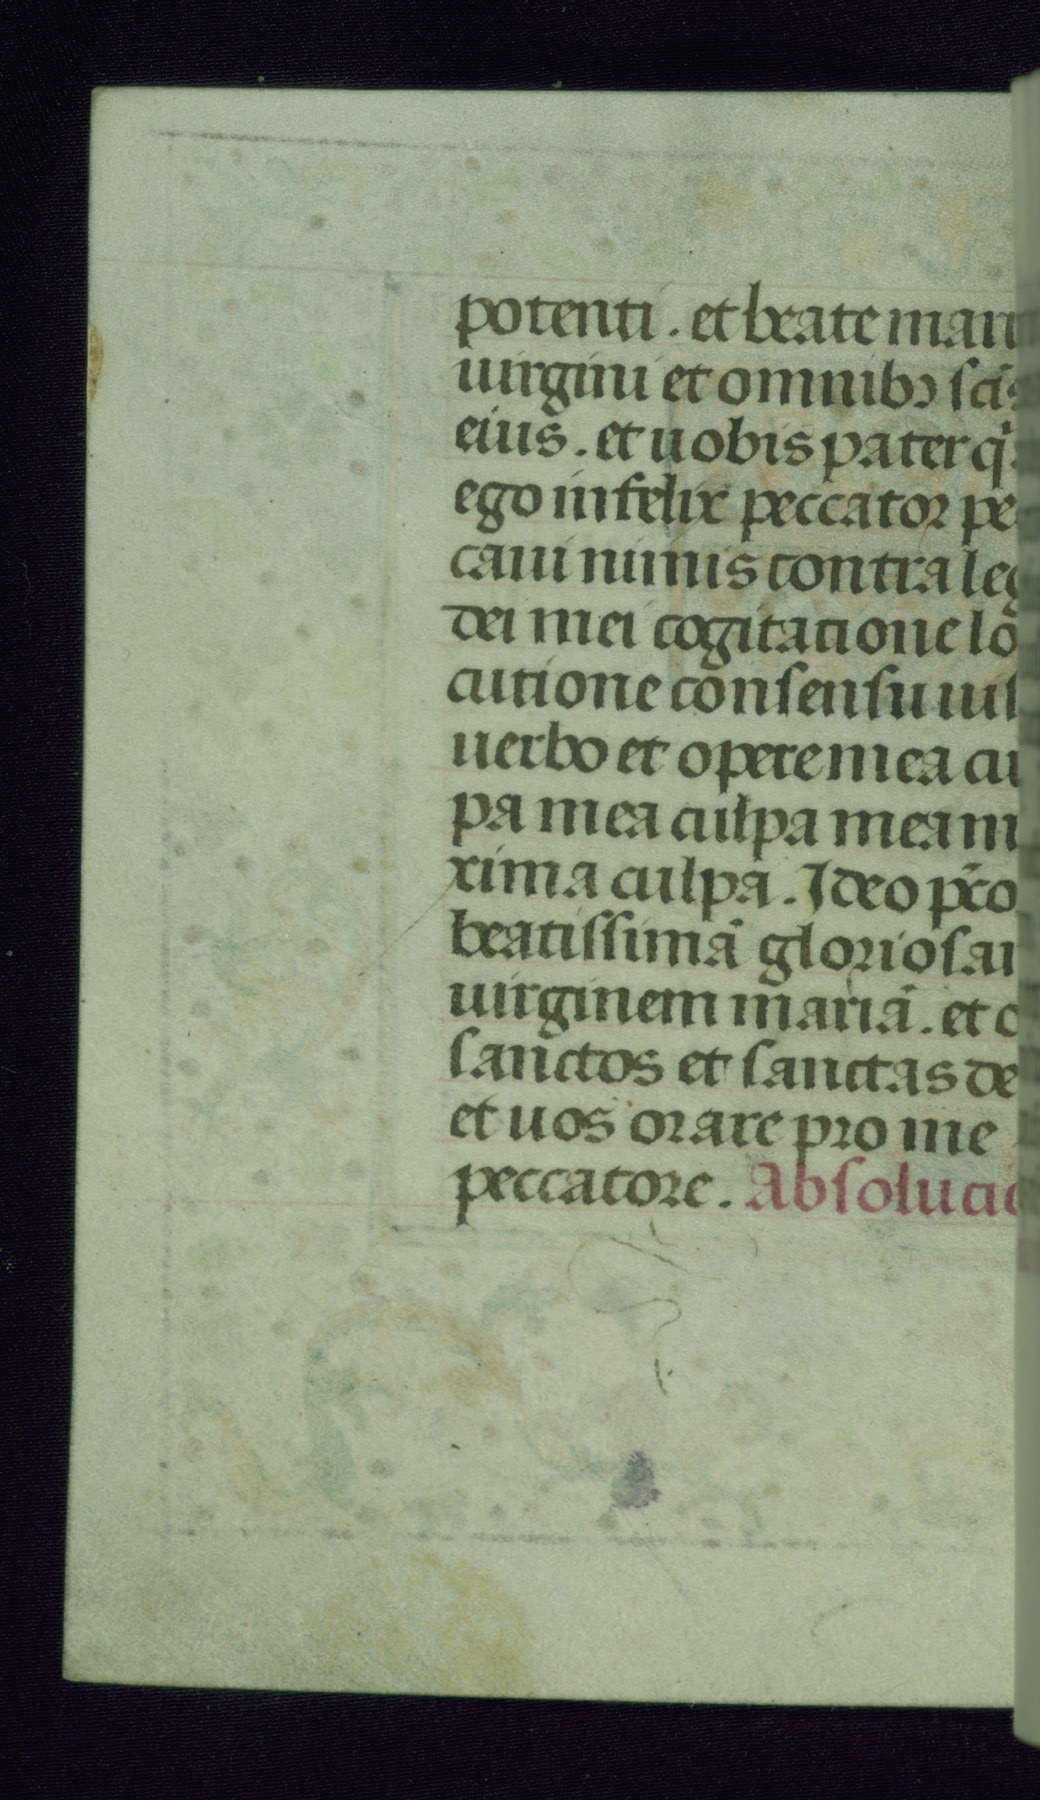 potenti. et beate mari
uirgini et omnibꝫ sc̄is
eius. et uobis pater q̄
ego infelix peccator pe
caui nimis contra leg
dei mei cogitatione lo
cutione consensu uis
uerbo et opere mea cu
pa mea culpa mea m
xima culpa. Ideo p̄co
beatissimā gloriosam
uirginem mariā. et o
sanctos et sanctas de
et uos orare pro me
peccatore. Absolucio